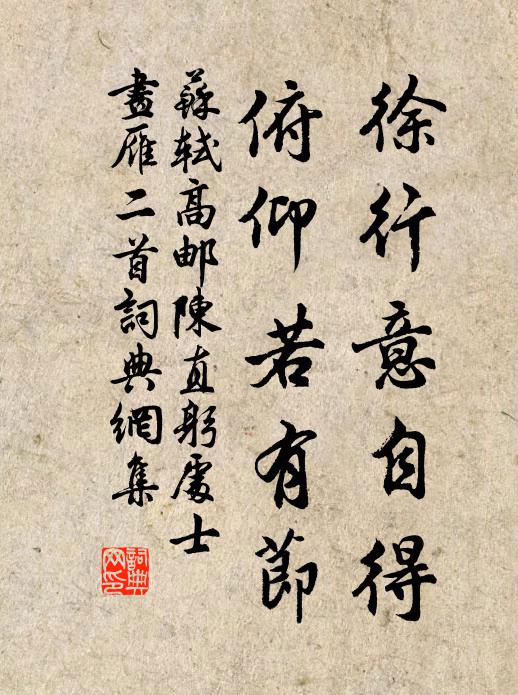 徐行意自得
俯仰若有節
蘇軾高邮陳直躬處士
畫雁二首詞典網集
詞典网印